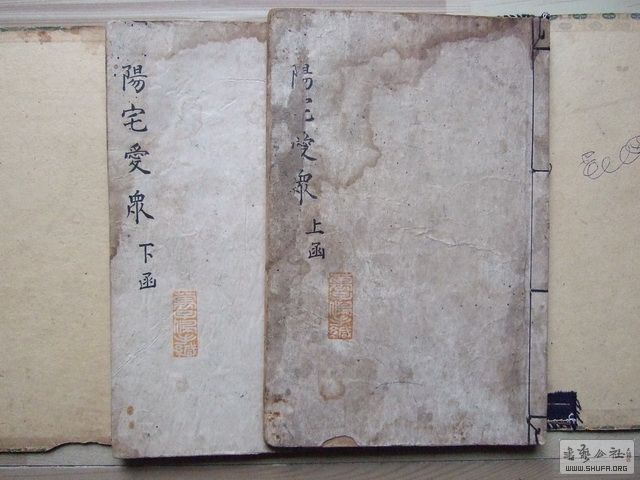 陽宅愛眾
上函
陽宅愛眾
下函
书艺公社
WWW.SHUFA.ORG